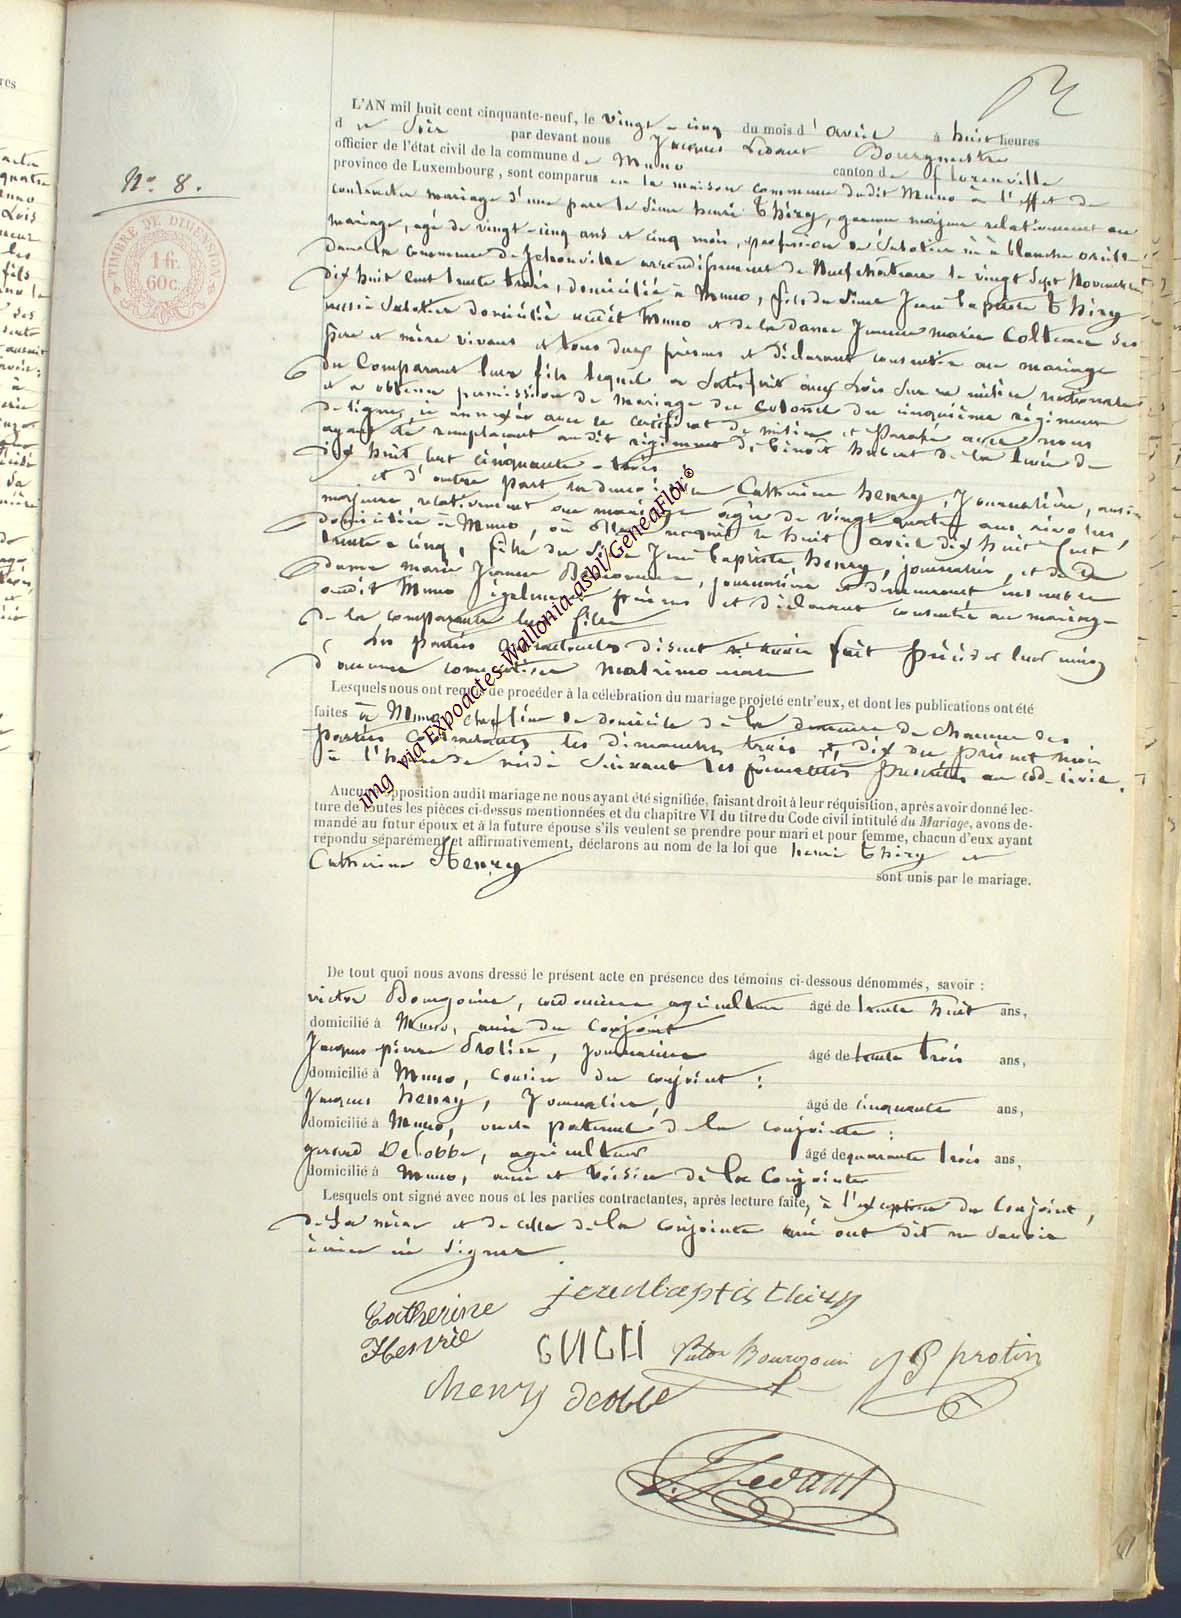 N° 8.
TIMBRE DE DIMENSION
1 fr. 60 c.
L'AN mil huit cent cinquante-neuf, le vingt-cinq du mois d'avril à huit heures
d u Soir par devant nous Jacques Ledant Bourgmestre
officier de l'état civil de la commune de Muno canton de florenville
province de Luxembourg, sont comparus en la maison commune dudit Muno à l'effet de
contracter mariage d'une part le Sieur henri Thiry, garçon majeur relativement au
mariage, agé de vingt-cinq ans et cinq mois, profession de Sabotier né à blanche oreille
dans la commune de Jehonville arrondissement de Neufchateau le vingt Sept Novembre
dix huit cent trente trois, domicilié à Muno, fils du Sieur Jean baptiste Thiry
aussi Sabotier domicilié audit Muno et de la Dame Jeanne marie Collignon Ses
père et mère vivans et tous deux présens et déclarant consentir au mariage
du Comparant leur fils lequel a Satisfait aux Lois Sur la milice nationale
et a obtenu permission de mariage du Colonel du cinquième régiment
de ligne, ci annexée avec le certificat de milice et Paraphé avec nous
ayant été remplaçant audit régiment de benoit hubert de la levée de
dix huit cent cinquante-trois
et d'autre part la demoiselle Catherine henry, Journalière, aussi
majeure relativement au mariage agée de vingt quatre ans révolus,
domiciliée à Muno, où elle naquit le huit avril dix huit cent
trente cinq, fille du Sieur Jean baptiste henry, journalier, et de
dame marie Jeanne journalière et demeurant ensemble
audit Muno également présens et déclarant consentir au mariage
de la comparante leur fille
Les parties contractantes disent n'avoir fait précéder leur union
d'aucune convention matrimoniale
Lesquels nous ont requis de procéder à la célébration du mariage projeté entr'eux, et dont les publications ont été
faites à Muno chef lieu du domicile de la demeure de chacune des
parties contractantes les dimanches trois et dix du présent mois
à l'heure de midi Suivant les formalités prescrites au code civil.
Aucune opposition audit mariage ne nous ayant été signifiée, faisant droit à leur réquisition, après avoir donné lec-
ture de toutes les pièces ci-dessus mentionnées et du chapitre VI du titre du Code civil intitulé du Mariage, avons de-
mandé au futur époux et à la future épouse s'ils veulent se prendre pour mari et pour femme, chacun d'eux ayant
répondu séparément et affirmativement, déclarons au nom de la loi que henri Thiry et
Catherine Henry
sont unis par le mariage.
De tout quoi nous avons dressé le présent acte en présence des témoins ci-dessous dénommés, savoir :
victor Bourgoin, agriculteur âgé de trente huit ans,
domicilié à Muno, ami du Conjoint
Jacques pierre Protin, Journalier âgé de trente trois ans,
domicilié à Muno, cousin du conjoint :
Jacques henry, Journalier, âgé de cinquante ans,
domicilié à Muno, oncle paternel de la conjointe :
gerard Delobbe, agriculteur âgé de quarante trois ans,
domicilié à Muno, ami et voisin de la Conjointe
Lesquels ont signé avec nous et les parties contractantes, après lecture faite, à l'exception du Conjoint,
de Sa mère et de celle de la conjointe qui ont dit ne Savoir
écrire ni Signer.
jeanbaptis thiry
Catherine
Henrie
Victor Bourgoin
JP protin
henry
delobbe
J. Ledant
img via Expoactes-Wallonia-asbl/GeneaFlor©